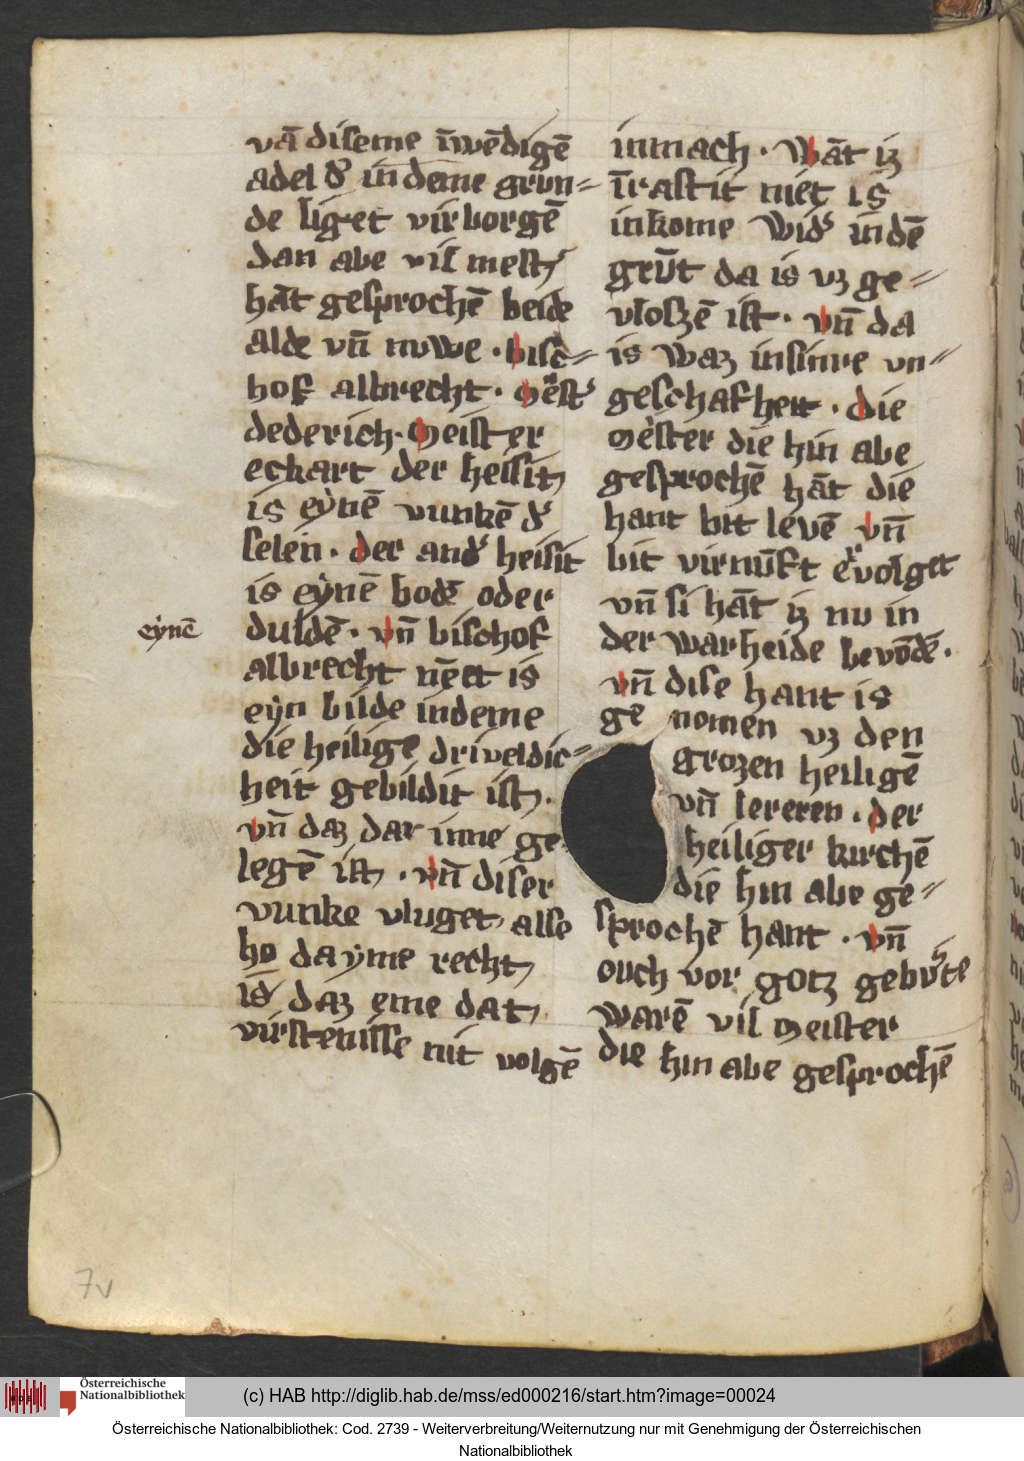 vā diseme īwēdigē
adel d' in deme grūn=
de liget virborgē
dan abe vil mest'
hāt gesprochē beide
alde vn̄ nuwe · bisc=
hof albrecht · mēst'
dederich · meister
eckart der heisit
is eynē vunkē d'
selen · der and' heisit
is eynē bodē oder
eynē
duldē · vn̄ bischof
albrecht nēet is
eyn bilde indeme
die heilige driueldic=
heit gebildit ist ·
vn̄ daz dar inne ge
legē ist · vn̄ diser
vunke vluget alse
ho dayme recht
is daz eme dat
virstenisse nit volgē
inmach · wāt iz
īrastit niet is
inkome wid' in dē
grūt da is vz ge=
vlozē ist · vn̄ da
is waz in sinre vn=
geschafheit · die
mēster die hin abe
gesprochē hāt die
hant bit levē vn̄
bit virnūft ervolget
vn̄ si hāt iz nu in
der warheide bevōdē ·
vn̄ dise hant is
ge nomen vz den
grozen heiligē
vn̄ lereren · der
heiliger kirchē
die hin abe ge=
sprochē hant · vn̄
ouch vor gotz geburte
warē vil meister
die hin abe gesprochē
7v
Österreichische
Nationalbibliothek
(c) HAB http://diglib.hab.de/mss/ed000216/start.htm?image=00024
Österreichische Nationalbibliothek: Cod. 2739 - Weiterverbreitung/Weiternutzung nur mit Genehmigung der Österreichischen
Nationalbibliothek